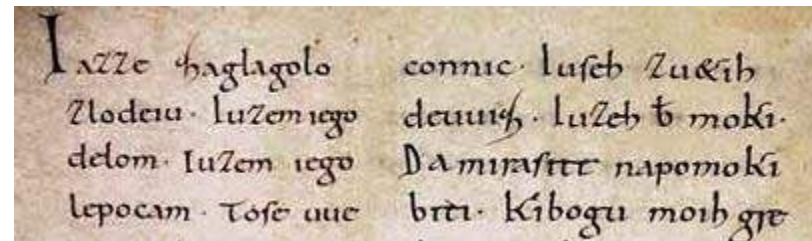 Iazze zaglagolo
zlodeiu· Iuzem iego
delom· Iuzem iego
lepocam· Tose uue
connic· Iuseh zu&ih
deuuiz· Iuzeh b̄ moki·
Da mirasite napomoki
biti· Kibogu moih gre